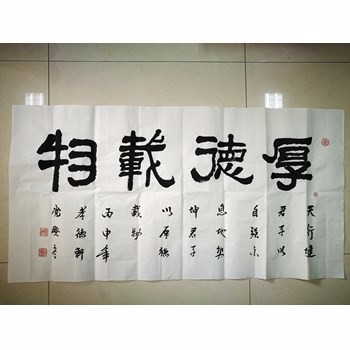 厚德載物
天行健
君子以
自强不
息地势
坤君子
以厚德
載物
丙申年